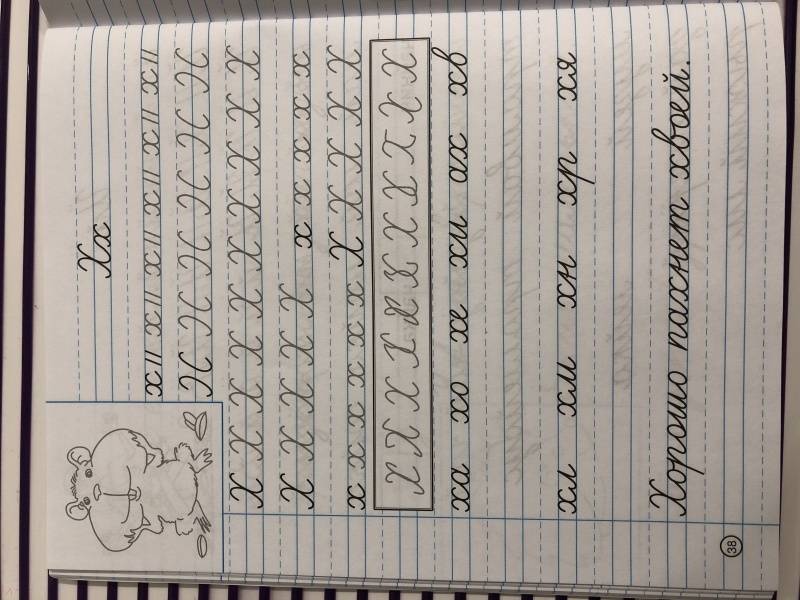 Хх
х // х // х // х // х // х //
Х Х Х Х Х Х
Х Х Х Х Х Х Х Х Х Х
Х Х Х Х Х х х х х х
х х х х х х Х Х Х Х Х
Х Х Х Х Х Х Х Х Х Х Х
ха хо хе хи ах хв
хл хм хн хр хя
Хорошо пахнет хвоей.
38